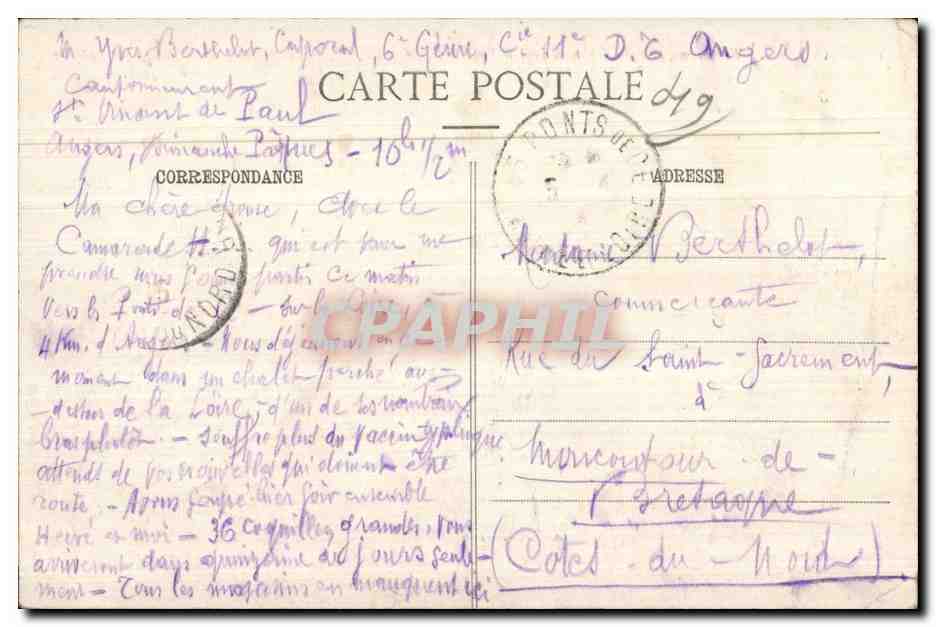 M. Yves Berthelot, Caporal, 6e Génie, Cie 11e D. 6 Angers.
Cantonnement
St Vincent de Paul
CARTE POSTALE
49
Angers, Dimanche Pâques - 10h 1/2 m
CORRESPONDANCE
ADRESSE
PONTS DE CÉ
LOIRE
Ma chère épouse, avec le
Camarade H... qui est pour me
prendre nous partis ce matin
vers les Ponts de
4 Km. d'Angers - Nous déjeunons en ce
moment dans un chalet perché au-
-dessus de la Loire, - d'un de ses nombreux
bras plutôt. - Souffre plus du vaccin typhique
attends de vos nouvelles qui doivent être
route. - Avons soupé hier soir ensemble
Hervé et moi - 36 coquilles grandes, vous
arriveront dans quinzaine de jours seule-
ment - Tous les magasins en manquent ici
Madame Berthelot,
commerçante
Rue du Saint-Sacrement,
à
Moncontour-de-
Bretagne
(Côtes-du-Nord)
CPAPHIL